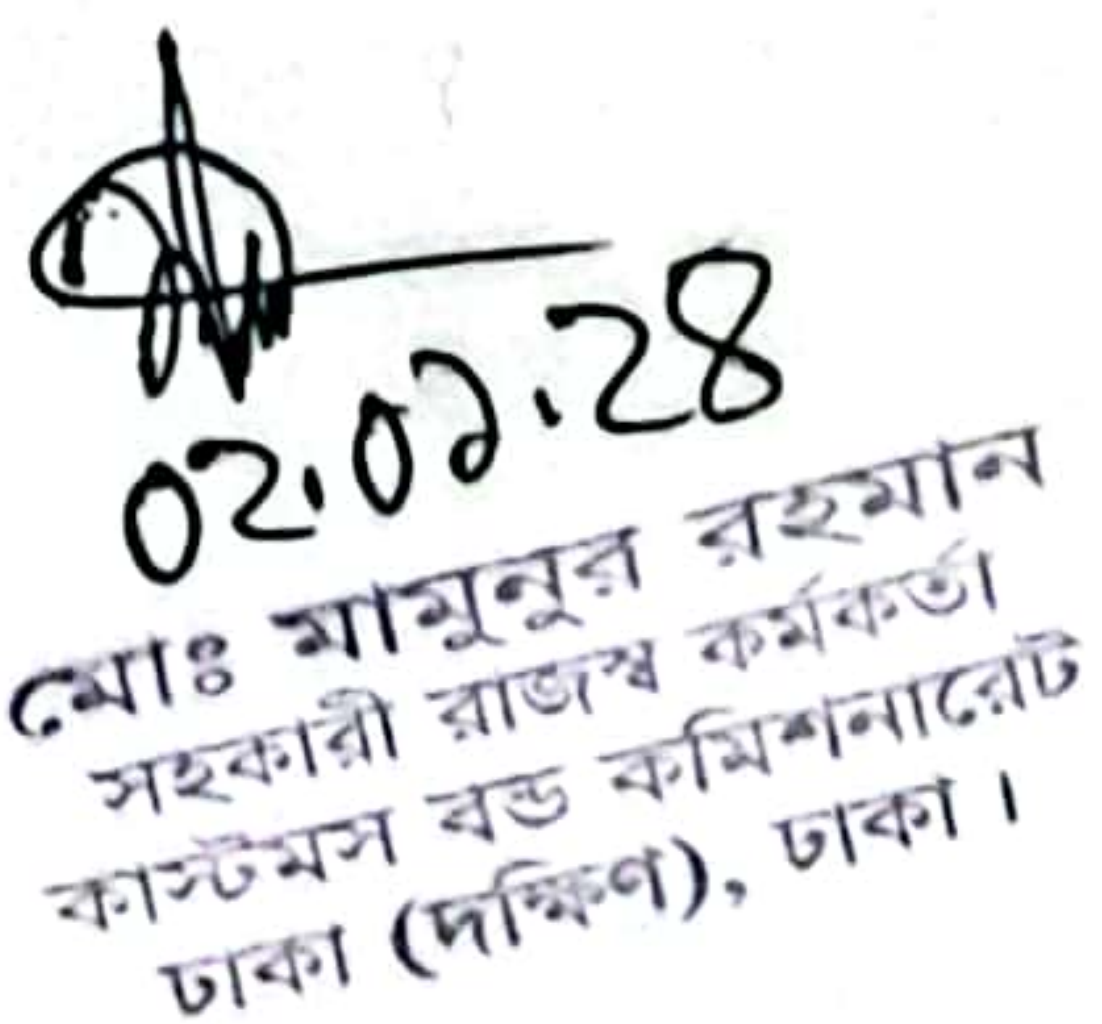 ০২.০১.২৪
মোঃ মামুনুর রহমান
সহকারী রাজস্ব কর্মকর্তা
কাস্টমস বন্ড কমিশনারেট
ঢাকা (দক্ষিণ), ঢাকা।